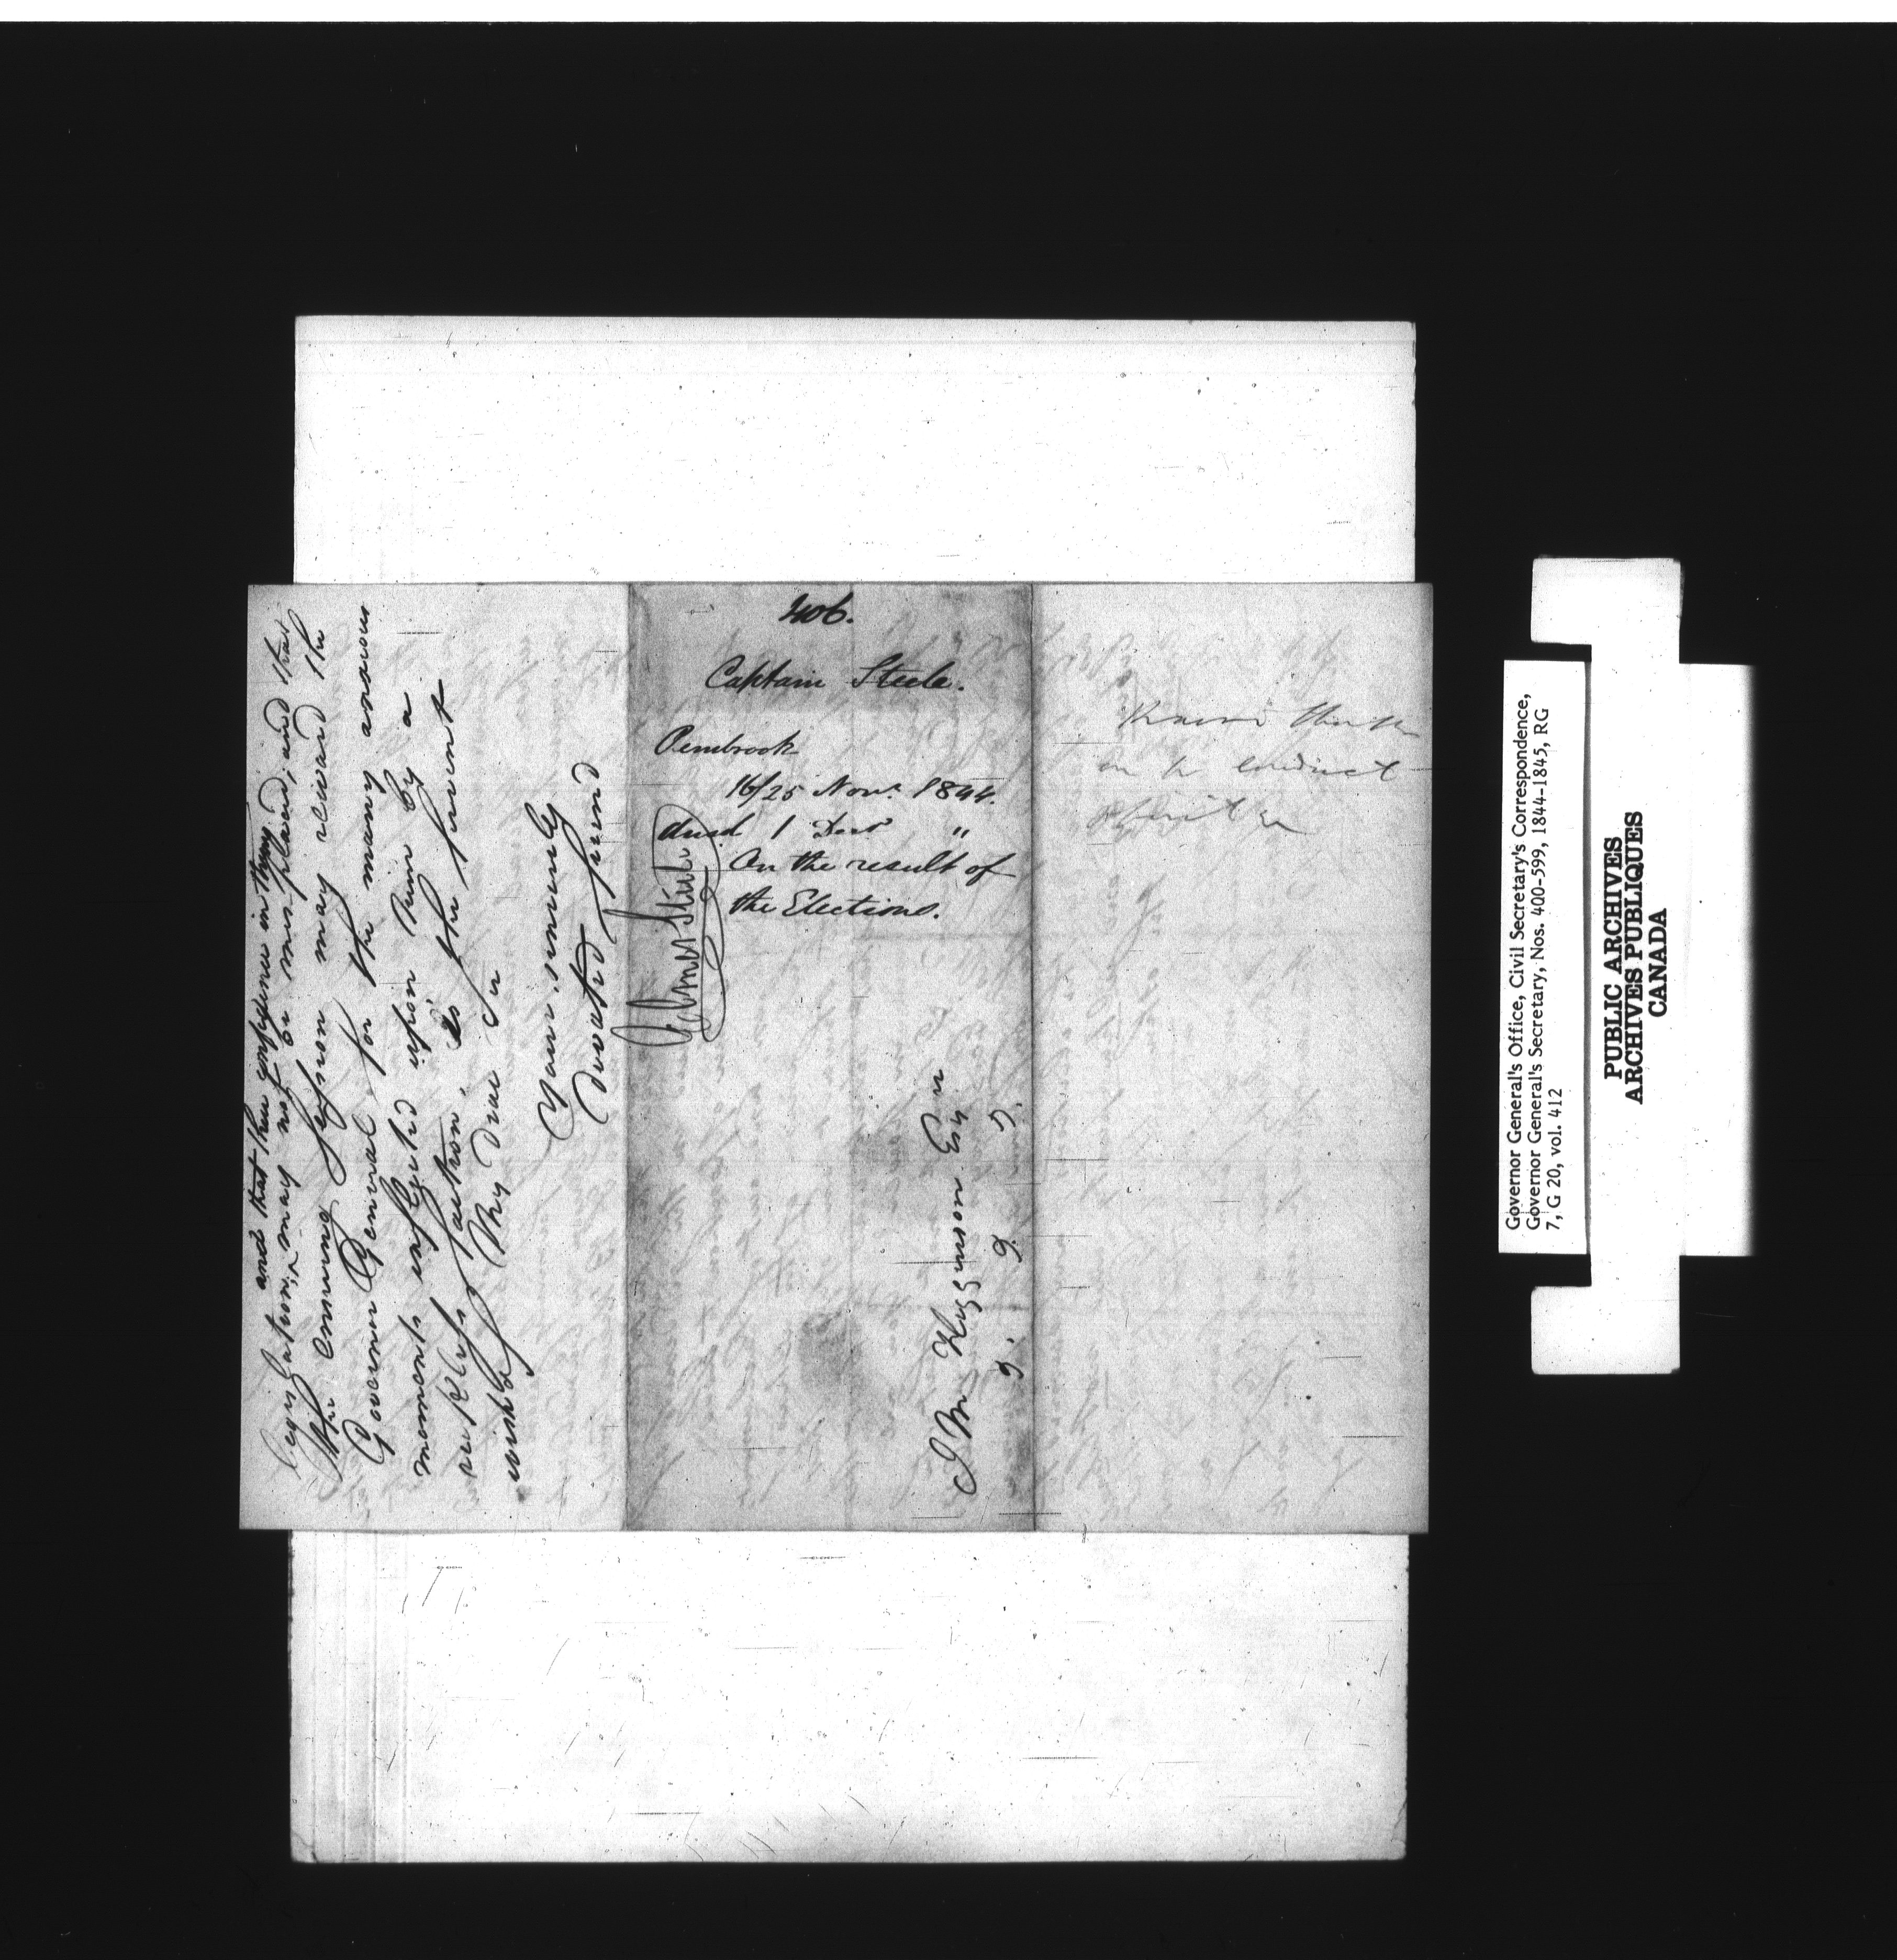 and that their confidence in them
legislation, may not be mis-placed; and that
the ensuing Session may reward the
Governor General for the many anxious
moments inflicted upon him by a
reckless faction, is the fervent
wish of My Dear Sir
Yours, sincerely
devoted friend
Elmes Steele
J M Higginson Esqr
406.
Captain Steele.
Pembrook
16/25 Novr 1844.
1 Decr "
On the result of
the Elections.
conduct
Governor General's Office, Civil Secretary's Correspondence,
Governor General's Secretary, Nos. 400-599, 1844-1845, RG
7, G 20, vol. 412
PUBLIC ARCHIVES
ARCHIVES PUBLIQUES
CANADA